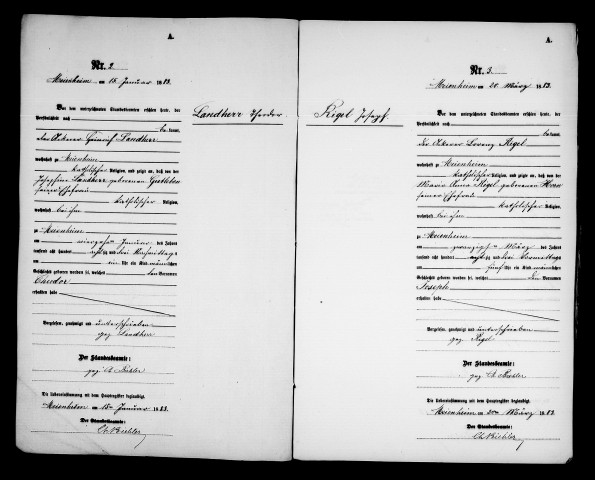 A.
Nr. 2.
Meienheim am 15 Januar 1883.
Vor dem unterzeichneten Standesbeamten erschien heute, der
Persönlichkeit nach
bekannt,
der Ackerer Landherr
wohnhaft zu Meienheim
katholischer Religion, und zeigte an, daß von der
Josephine Landherr geborenen
seiner Ehefrau
katholischer Religion,
wohnhaft bei ihm
zu Meienheim
am vierzehn Januar des Jahres
tausend acht hundert achtzig und drei Vormittags
um ein Uhr ein Kind männlichen
Geschlechts geboren worden sei, welches den Vornamen
Theodor
erhalten habe
Vorgelesen, genehmigt und unterschrieben
gez. Landherr
Der Standesbeamte:
gez. Ch. Bichler
Die Uebereinstimmung mit dem Hauptregister beglaubigt
Meienheim am 15ten Januar 1883.
Der Standesbeamte:
Ch. Bichler
Landherr Theodor
A.
Nr. 3.
Meienheim am 20 März 1883.
Rigel Joseph
Vor dem unterzeichneten Standesbeamten erschien heute, der
Persönlichkeit nach
bekannt,
der Ackerer Lorenz Rigel
wohnhaft zu Meienheim
katholischer Religion, und zeigte an, daß von der
Maria Anna Rigel geborenen Horn
seiner Ehefrau
katholischer Religion,
wohnhaft bei ihm
zu Meienheim
am zwanzigsten März des Jahres
tausend acht hundert achtzig und drei Vormittags
um fünf Uhr ein Kind männlichen
Geschlechts geboren worden sei, welches den Vornamen
Joseph
erhalten habe
Vorgelesen, genehmigt und unterschrieben
gez. Rigel
Der Standesbeamte:
gez. Ch. Bichler
Die Uebereinstimmung mit dem Hauptregister beglaubigt
Meienheim am 20ten März 1883.
Der Standesbeamte:
Ch. Bichler